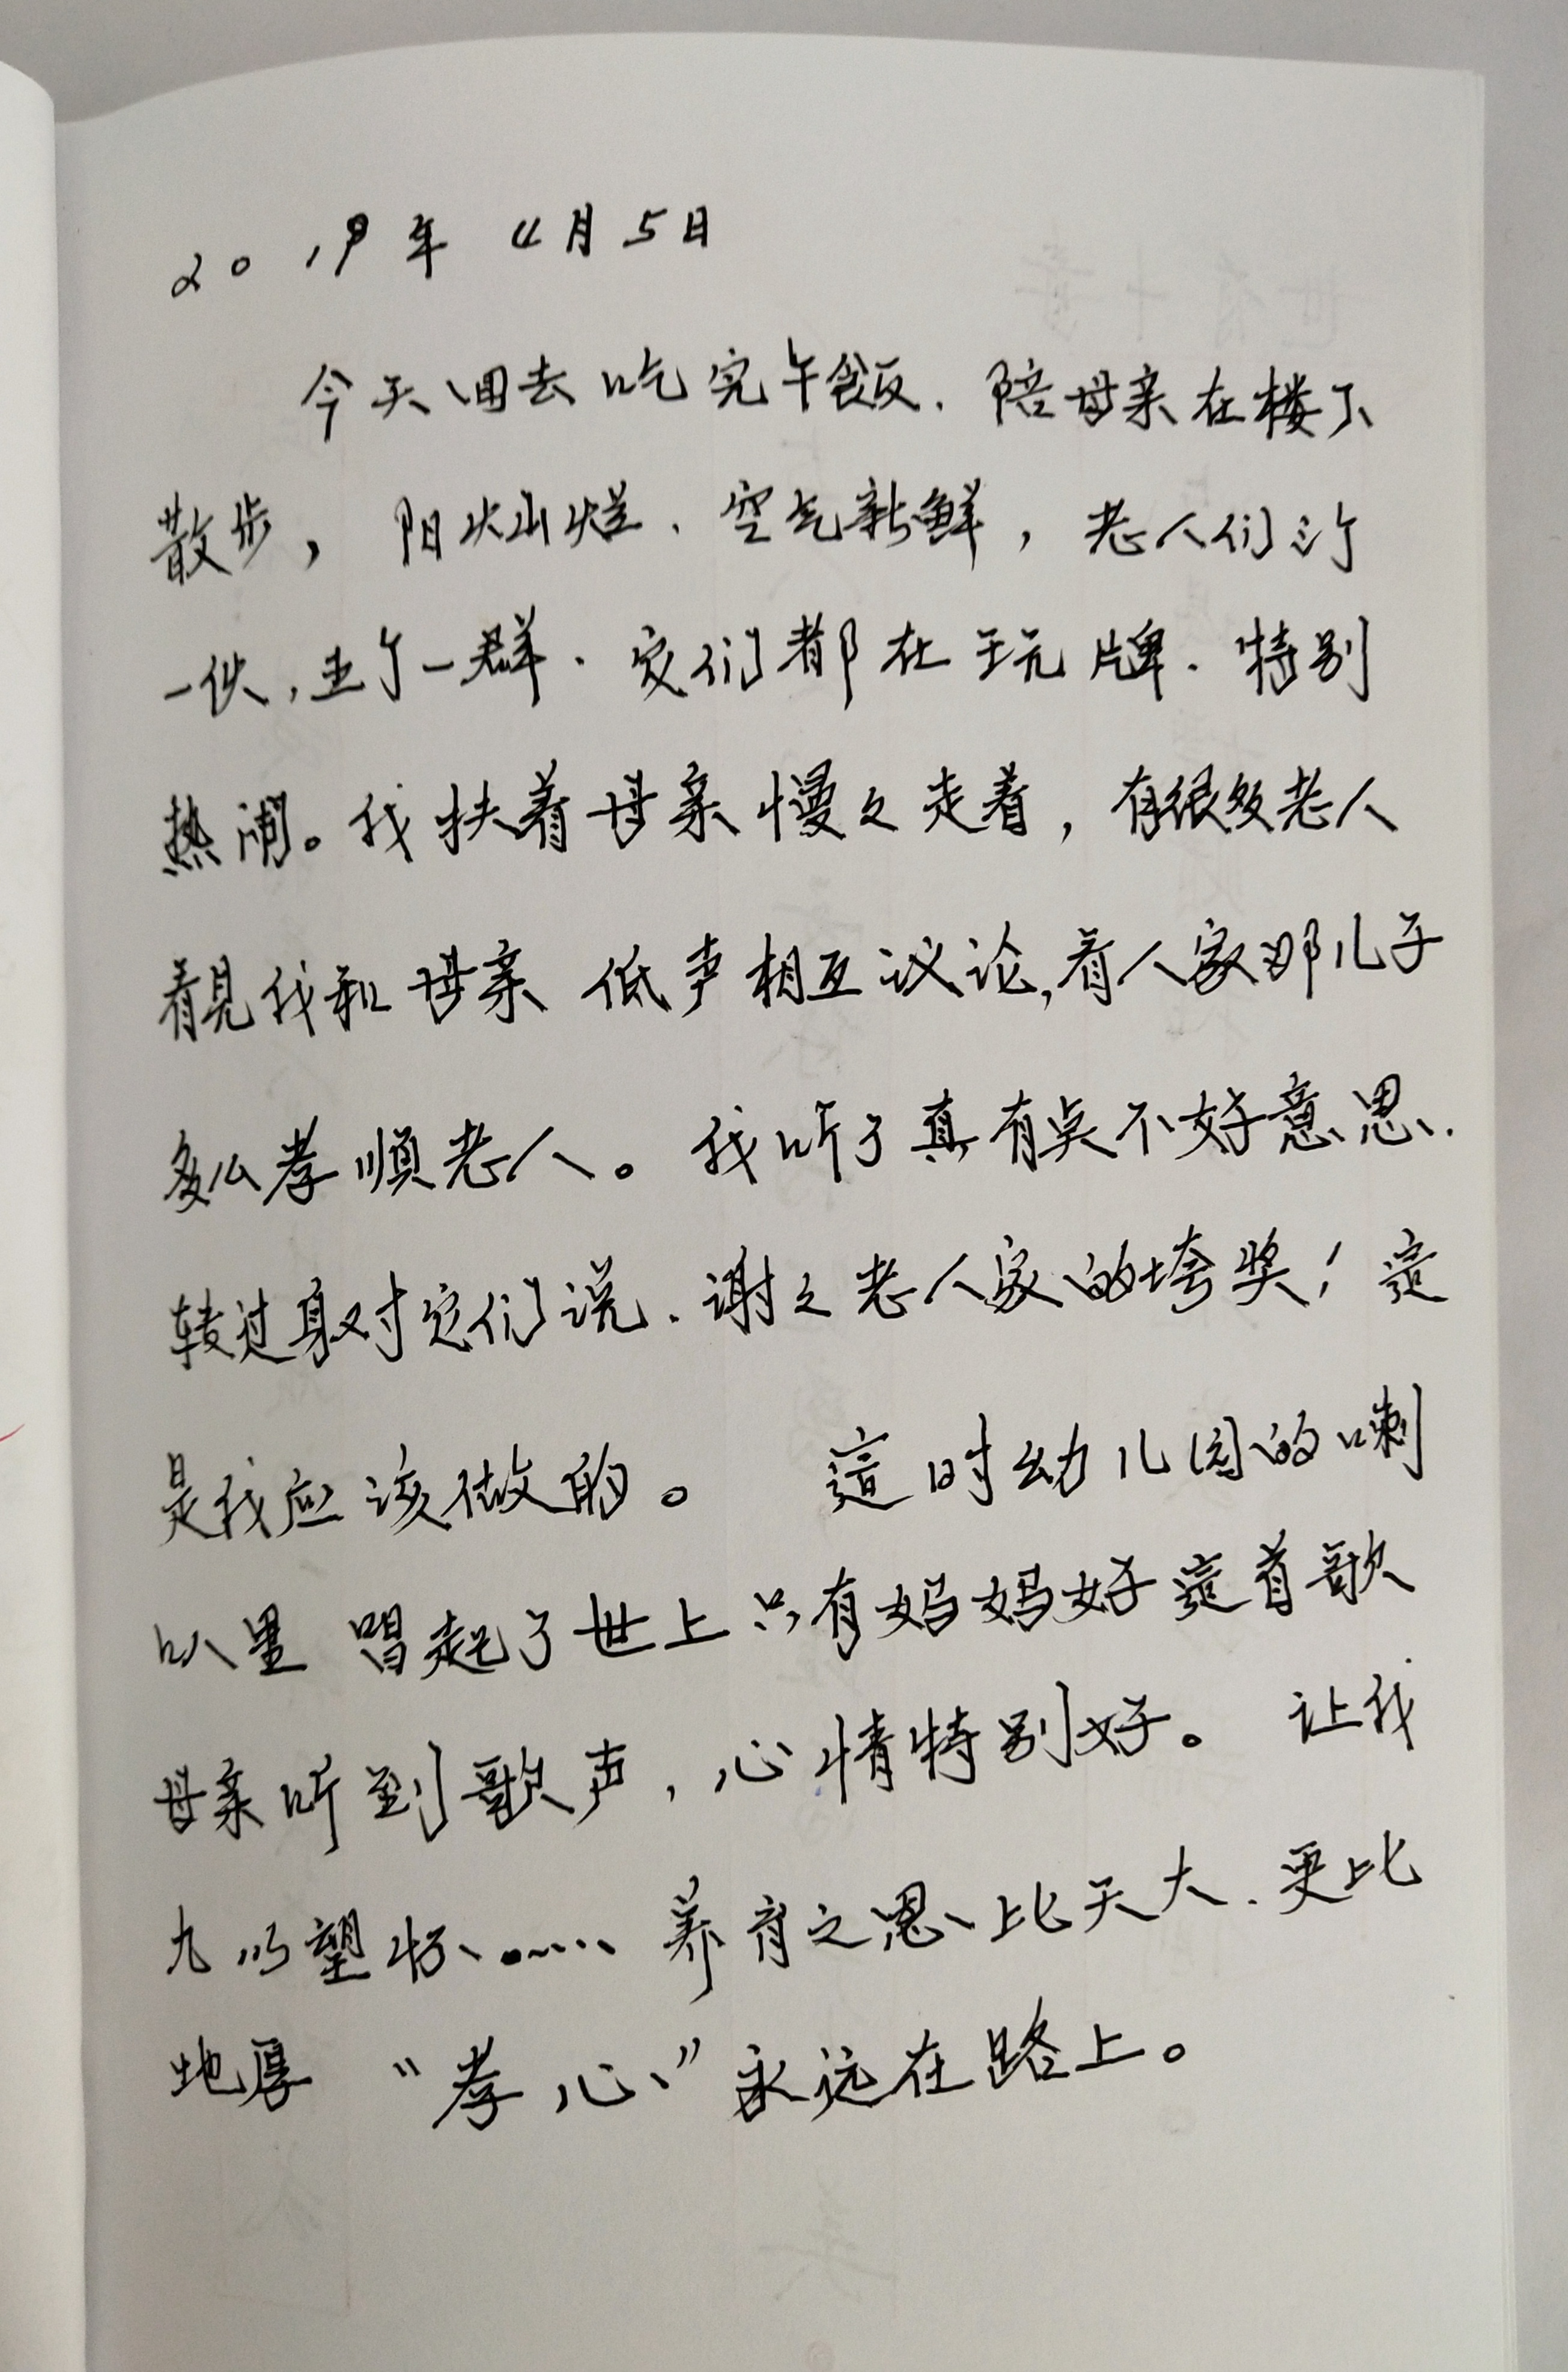 2019年 4月5日
今天回去吃完午饭、陪母亲在楼下
散步，阳光灿烂、空气新鲜，老人们三个
一伙，五个一群、它们都在玩牌、特别
热闹。我扶着母亲慢々走着，有很多老人
看见我和母亲 低声相互议论,看人家那儿子
多么孝顺老人。我听了真有点不好意思、
转过身对它们说、谢々老人家的垮奖！這
是我应该做的。 這时幼儿园的喇
叭里 唱起了世上只有妈妈好這首歌
母亲听到歌声，心情特别好。 让我
九 望怀、…… 养育之恩比天大、更比
地厚 “孝心”永远在路上。